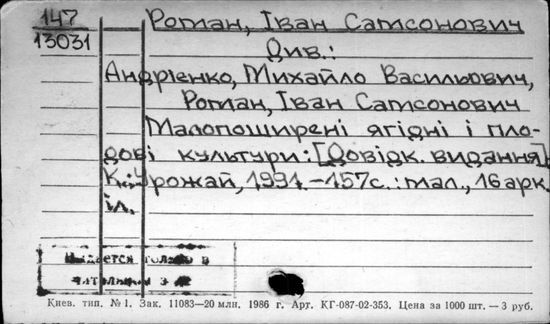 147 Роман, Іван Самсонович
13031 Див.:
Андрієнко, Михайло Васильович,
Роман, Іван Самсонович
Малопоширені ягідні і пло-
дові культури: [Довідк. видання]
К.: Урожай, 1991.-157с.: мал., 16 арк.
іл.
Выдается только в
читальный з
Киев. тип. № 1. Зак. 11083—20 млн. 1986 г. Арт. КГ-087-02-353. Цена за 1000 шт. — 3 руб.